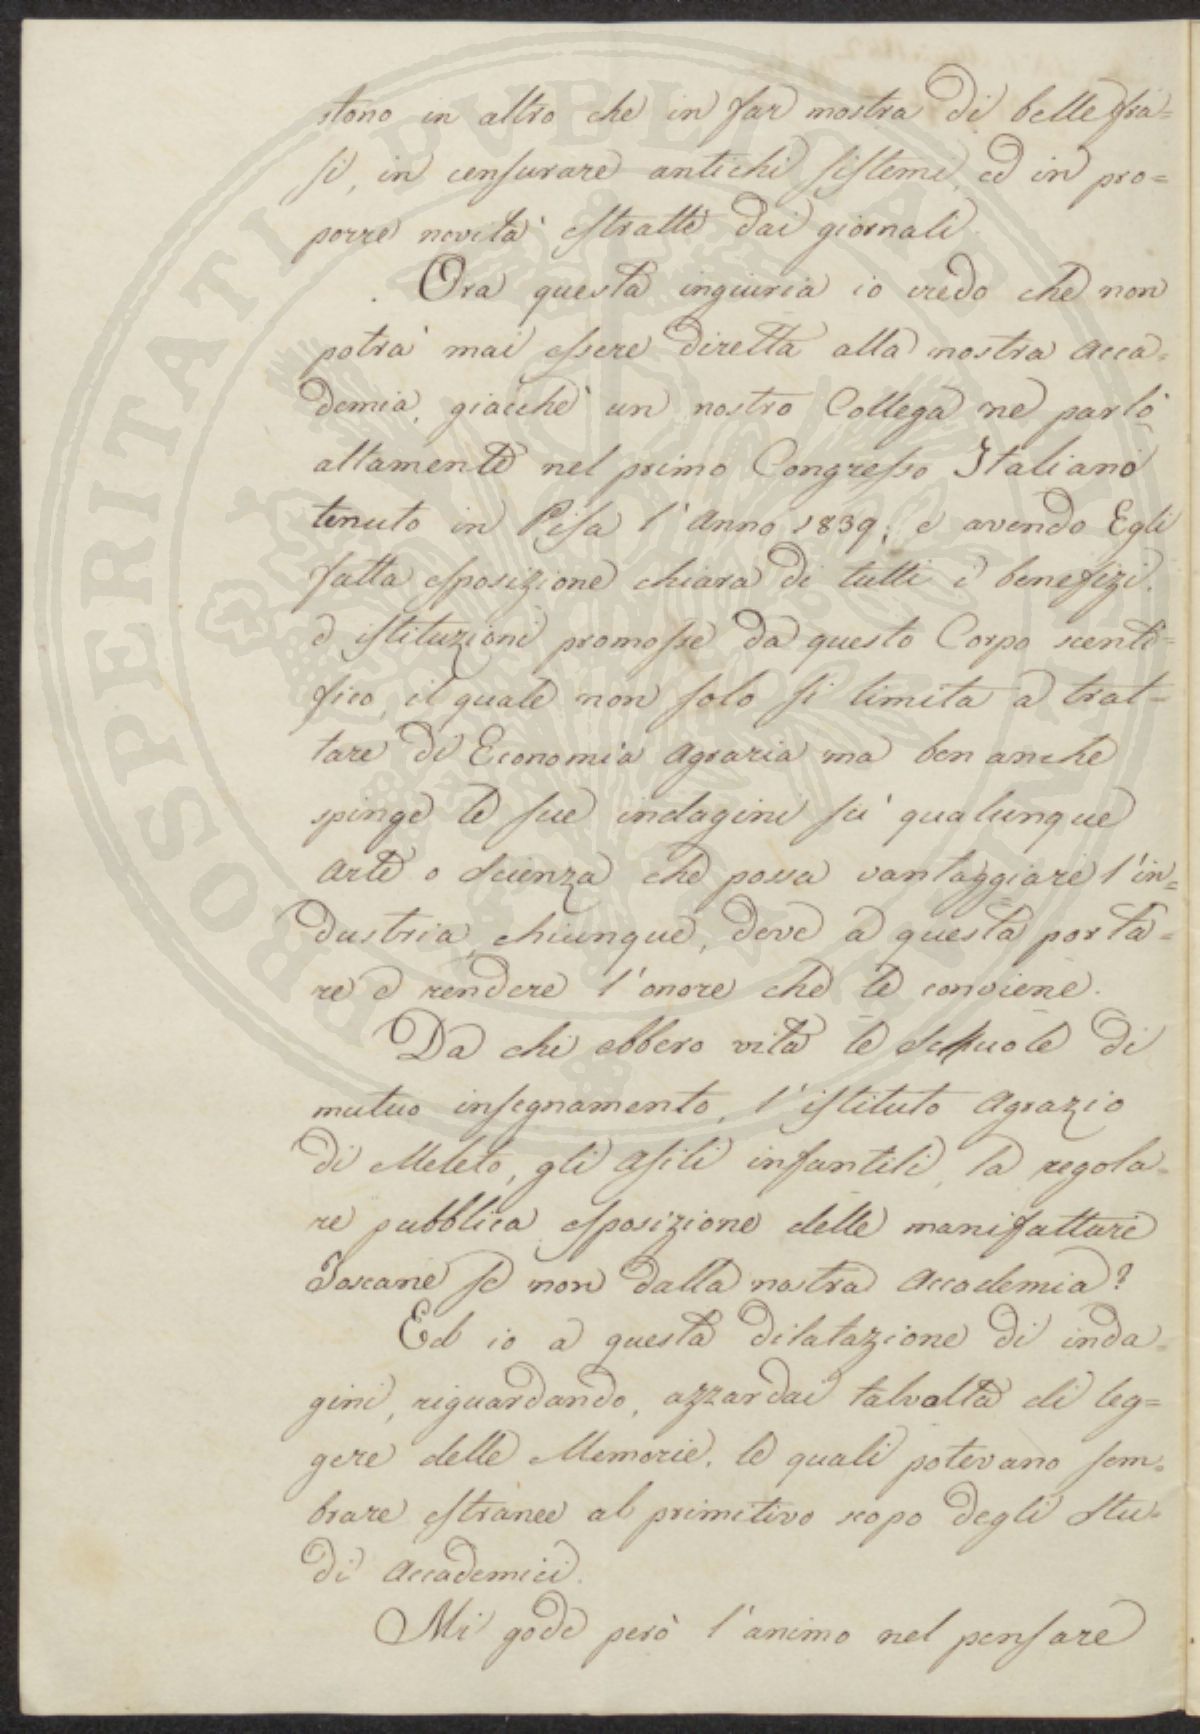 stono in altro che in far mostra di belle fra=
si, in censurare antichi sistemi, ed in pro=
porre novità estratte dai giornali.
Ora questa ingiuria io credo che non
potrà mai essere diretta alla nostra Acca=
demia, giacchè un nostro Collega ne parlò
altamente nel primo Congresso Italiano
tenuto in Pisa l'Anno 1839; e avendo Egli
fatta esposizione chiara di tutti i benefizi,
e istituzioni promosse da questo Corpo scenti=
fico, il quale non solo si limita a trat=
tare di Economia Agraria ma ben anche
spinge le sue indagini su' qualunque
Arte o Scienza che possa vantaggiare l'in=
dustria, chiunque, deve a questa porta=
re e rendere l'onore che le conviene.
Da chi ebbero vita le Scuole di
mutuo insegnamento, l'istituto Agrario
di Meleto, gli Asili infantili, la regola=
re pubblica esposizione delle manifatture
Toscane se non dalla nostra Accademia?
Ed io a questa dilatazione di inda=
gini, riguardando, azzardai talvolta di leg=
gere delle Memorie, le quali potevano sem=
brare estranee al primitivo scopo degli Stu=
di Accademici.
Mi gode però l'animo nel pensare
PROSPERITATI PVBLICAE